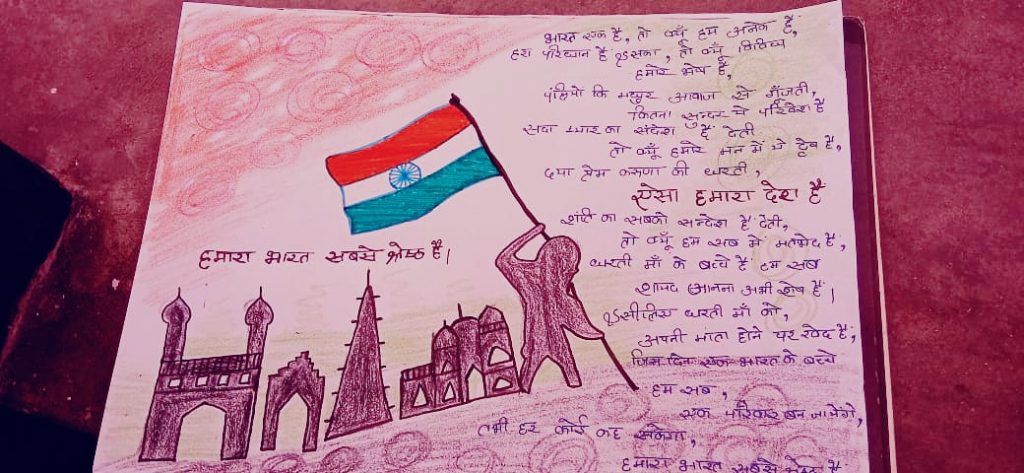 भारत एक है, तो क्यूँ हम अनेक है,
हरा परिधान है इसका, तो क्यूँ विभिन्न
हमारे भेष है,
पंछियों कि मधुर आवाज से गूँजती,
कितना सुन्दर ये परिवेश है
सदा प्यार का संदेश है देती
तो क्यूँ हमारे मन में ये द्वेष है,
दया प्रेम करुणा की धरती,
ऐसा हमारा देश है
शांति का सबको सन्देश है देती,
तो क्यूँ हम सब में मतभेद है,
धरती माँ के बच्चे है हम सब
शायद जानना अभी शेष है।
इसीलिए धरती माँ को,
अपनी माता होने पर खेद है,
जिस दिन एक भारत के बच्चे
हम सब,
एक परिवार बन जायेंगे,
तभी हर कोई कह सकेगा,
हमारा भारत सबसे श्रेष्ठ है
हमारा भारत सबसे श्रेष्ठ है।